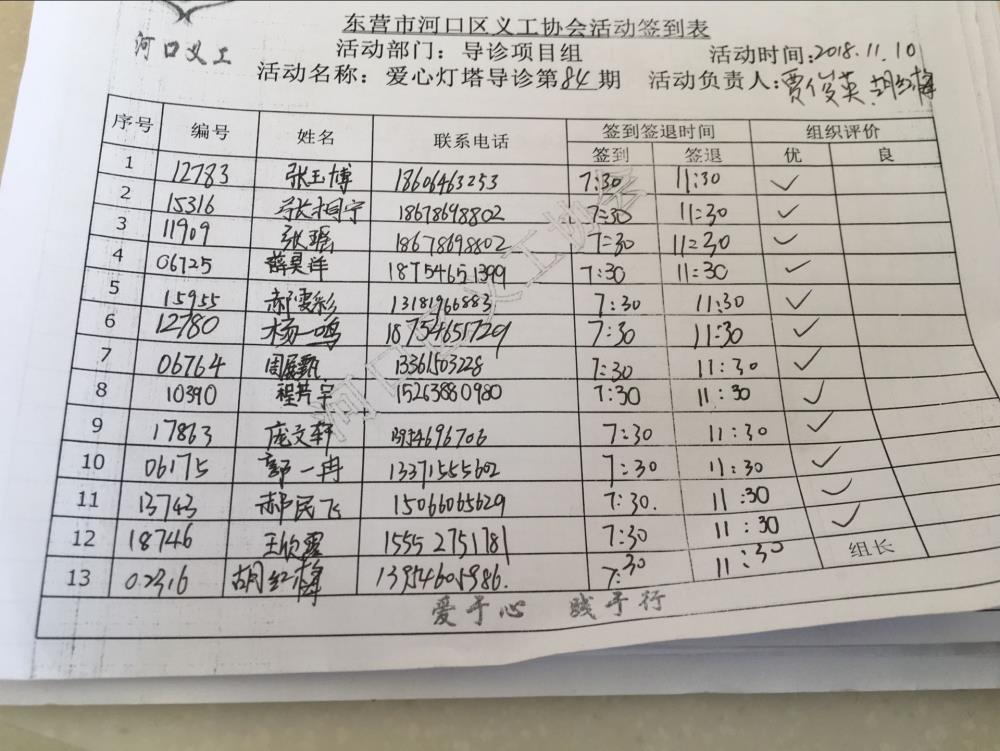 东营市河口区义工协会活动签到表
河口义工
活动部门：导诊项目组 活动时间:2018.11.10
活动名称：爱心灯塔导诊第84期 活动负责人:贾俊英 胡红梅
序号 编号 姓名 联系电话 签到签退时间 组织评价
签到 签退 优 良
1 12783 张玉博 18606463253 7:30 11:30 ✓
2 15316 张桐宁 18678698802 7:30 11:30 ✓
3 11909 张瑶 18678698802 7:30 11:30 ✓
4 06725 薛昊洋 18754651399 7:30 11:30 ✓
5 15955 郝雯彩 13181966883 7:30 11:30 ✓
6 12780 杨一鸣 18754651729 7:30 11:30 ✓
7 06764 周展甄 13361503228 7:30 11:30 ✓
8 10390 程芳宇 15263880980 7:30 11:30 ✓
9 17863 庞文轩 7:30 11:30 ✓
10 06175 郭一冉 13371555602 7:30 11:30 ✓
11 13743 郝民飞 15066065629 7:30. 11:30 ✓
12 18746 王欣露 15552751781 7:30 11:30 ✓
13 02316 胡红梅 13954605986. 7:30 11:30 组长
爱于心 践于行
河口区义工协会